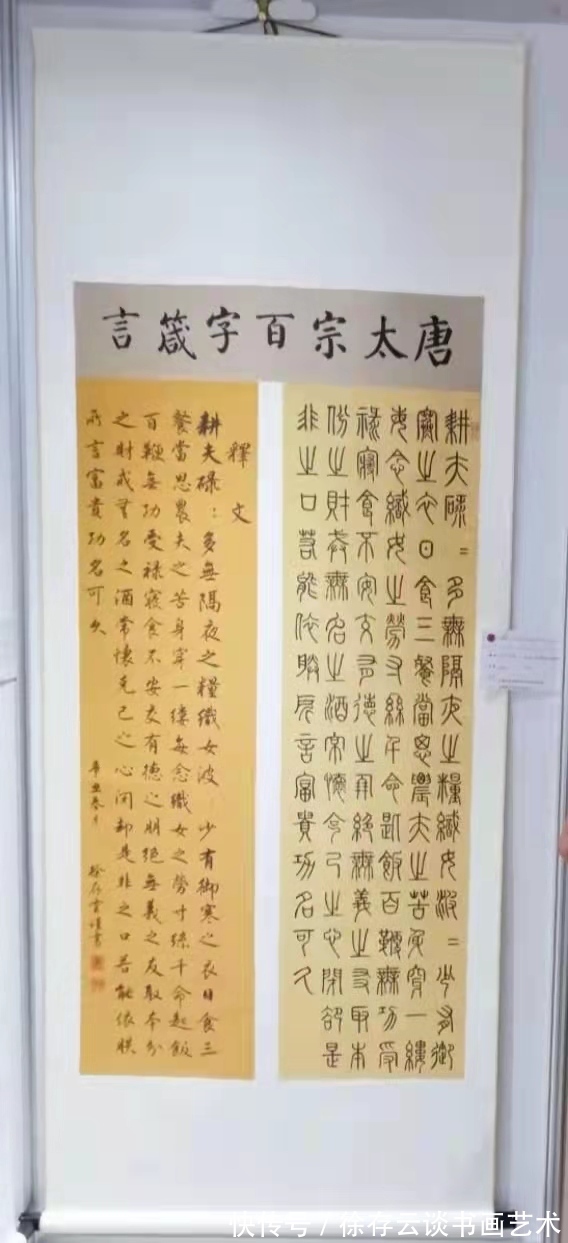 唐太宗百字箴言
耕夫碌=多無隔夜之糧織女波=少有御
寒之衣日食三餐當思農夫之苦身穿一縷
每念織女之勞寸絲千命匙飯百鞭無功受
祿寢食不安交有德之朋絕無義之友取本
份之財戒無名之酒常懷克己之心閉卻是
非之口若能依朕所言富貴功名可久
釋文
耕夫碌:多無隔夜之糧織女波 少有御寒之衣日食三
餐當思農夫之苦身穿一縷每念織女之勞寸絲千命匙飯
百鞭無功受祿寢食不安交有德之朋絕無義之友取本分
之財戒無名之酒常懷克己之心閉却是非之口若能依朕
所言富貴功名可久
辛丑春月 徐存雲謹書
快传号/徐存云谈书画艺术